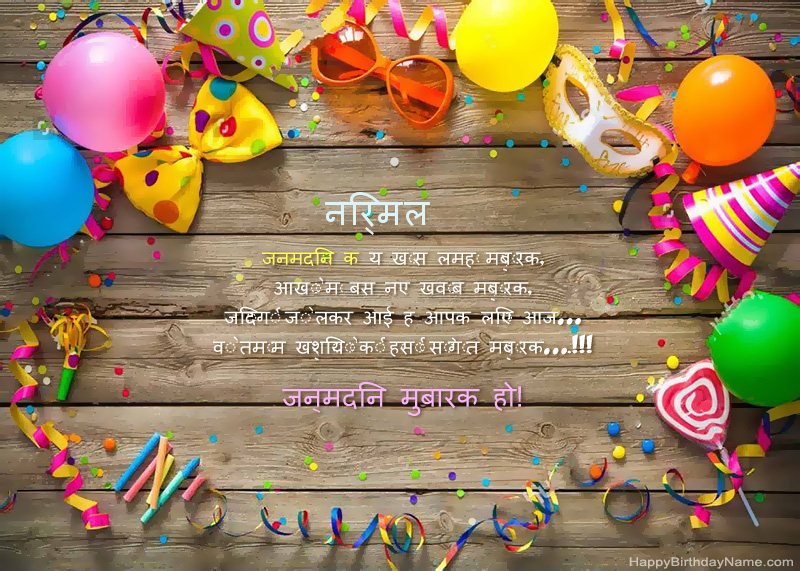 निर्मल
जनमदिन क य ख़ास लमह मुबारक,
आंखों में बसे नए ख्वाब मुबारक,
जिंदगी जो लेकर आई है आपके लिए आज...
वो तमाम खुशियों की हंसीं सौगात मुबारक...!!!
जन्मदिन मुबारक हो!
HappyBirthdayName.com